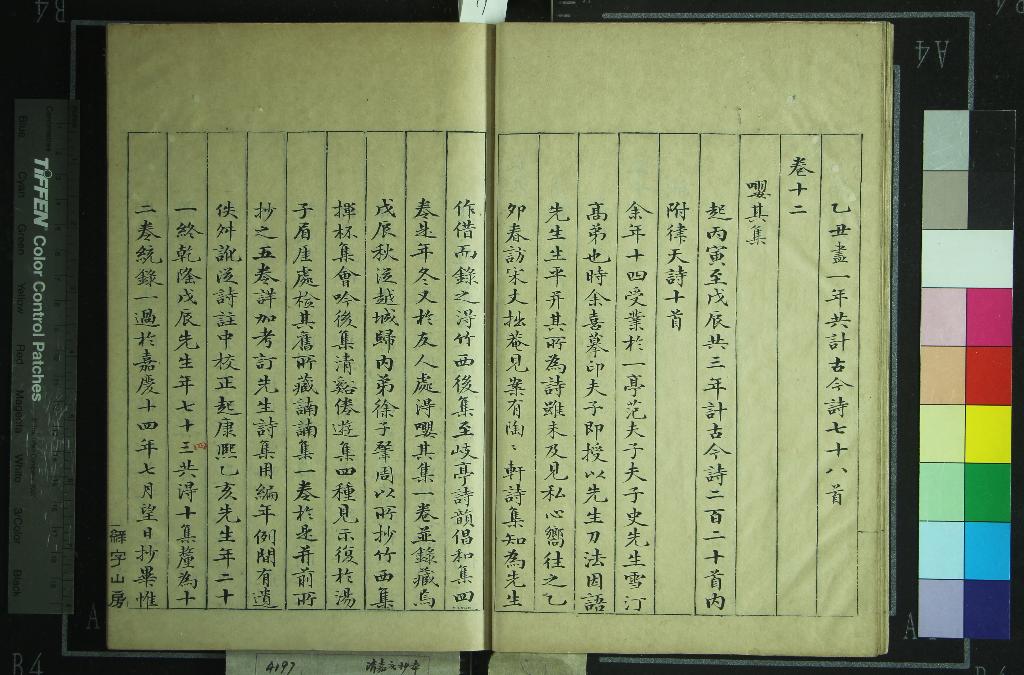 乙丑盡一年共計古今詩七十八首
卷十二
嚶其集
起丙寅至戊辰共三年計古今詩二百二十首内
附律天詩十首
余年十四受業於一亭范夫子夫子史先生雪汀
髙弟也時余喜摹印夫子即授以先生刀法因語
先生生平并其所為詩雖未及見私心嚮往之乙
夘春訪宋丈拙菴見案有陶〻軒詩集知為先生
作借而錄之淂竹西後集至岐亭詩韻倡和集四
卷是年冬又於友人處淂嚶其集一卷並錄藏焉
戊辰秋泛越城歸内弟徐子肇周以所抄竹西集
揮杯集會吟後集清谿倦遊集四種見示復於湯
子眉厓處檢其舊所藏誦誦集一卷於是并前所
抄之五卷詳加考訂先生詩集用編年例間有遺
佚舛訛從詩註中校正起康熙乙亥先生年二十
一終乾隆戊辰先生年七十三共淂十集釐為十
四
二卷統錄一過於嘉慶十四年七月望日抄畢惟
觧字山房
A4
B4
A
TIFFEN Color Control Patches
Blue
Cyan
Green
Yellow
Red
Magenta
White
3/Color
Black
4197
清嘉慶抄本